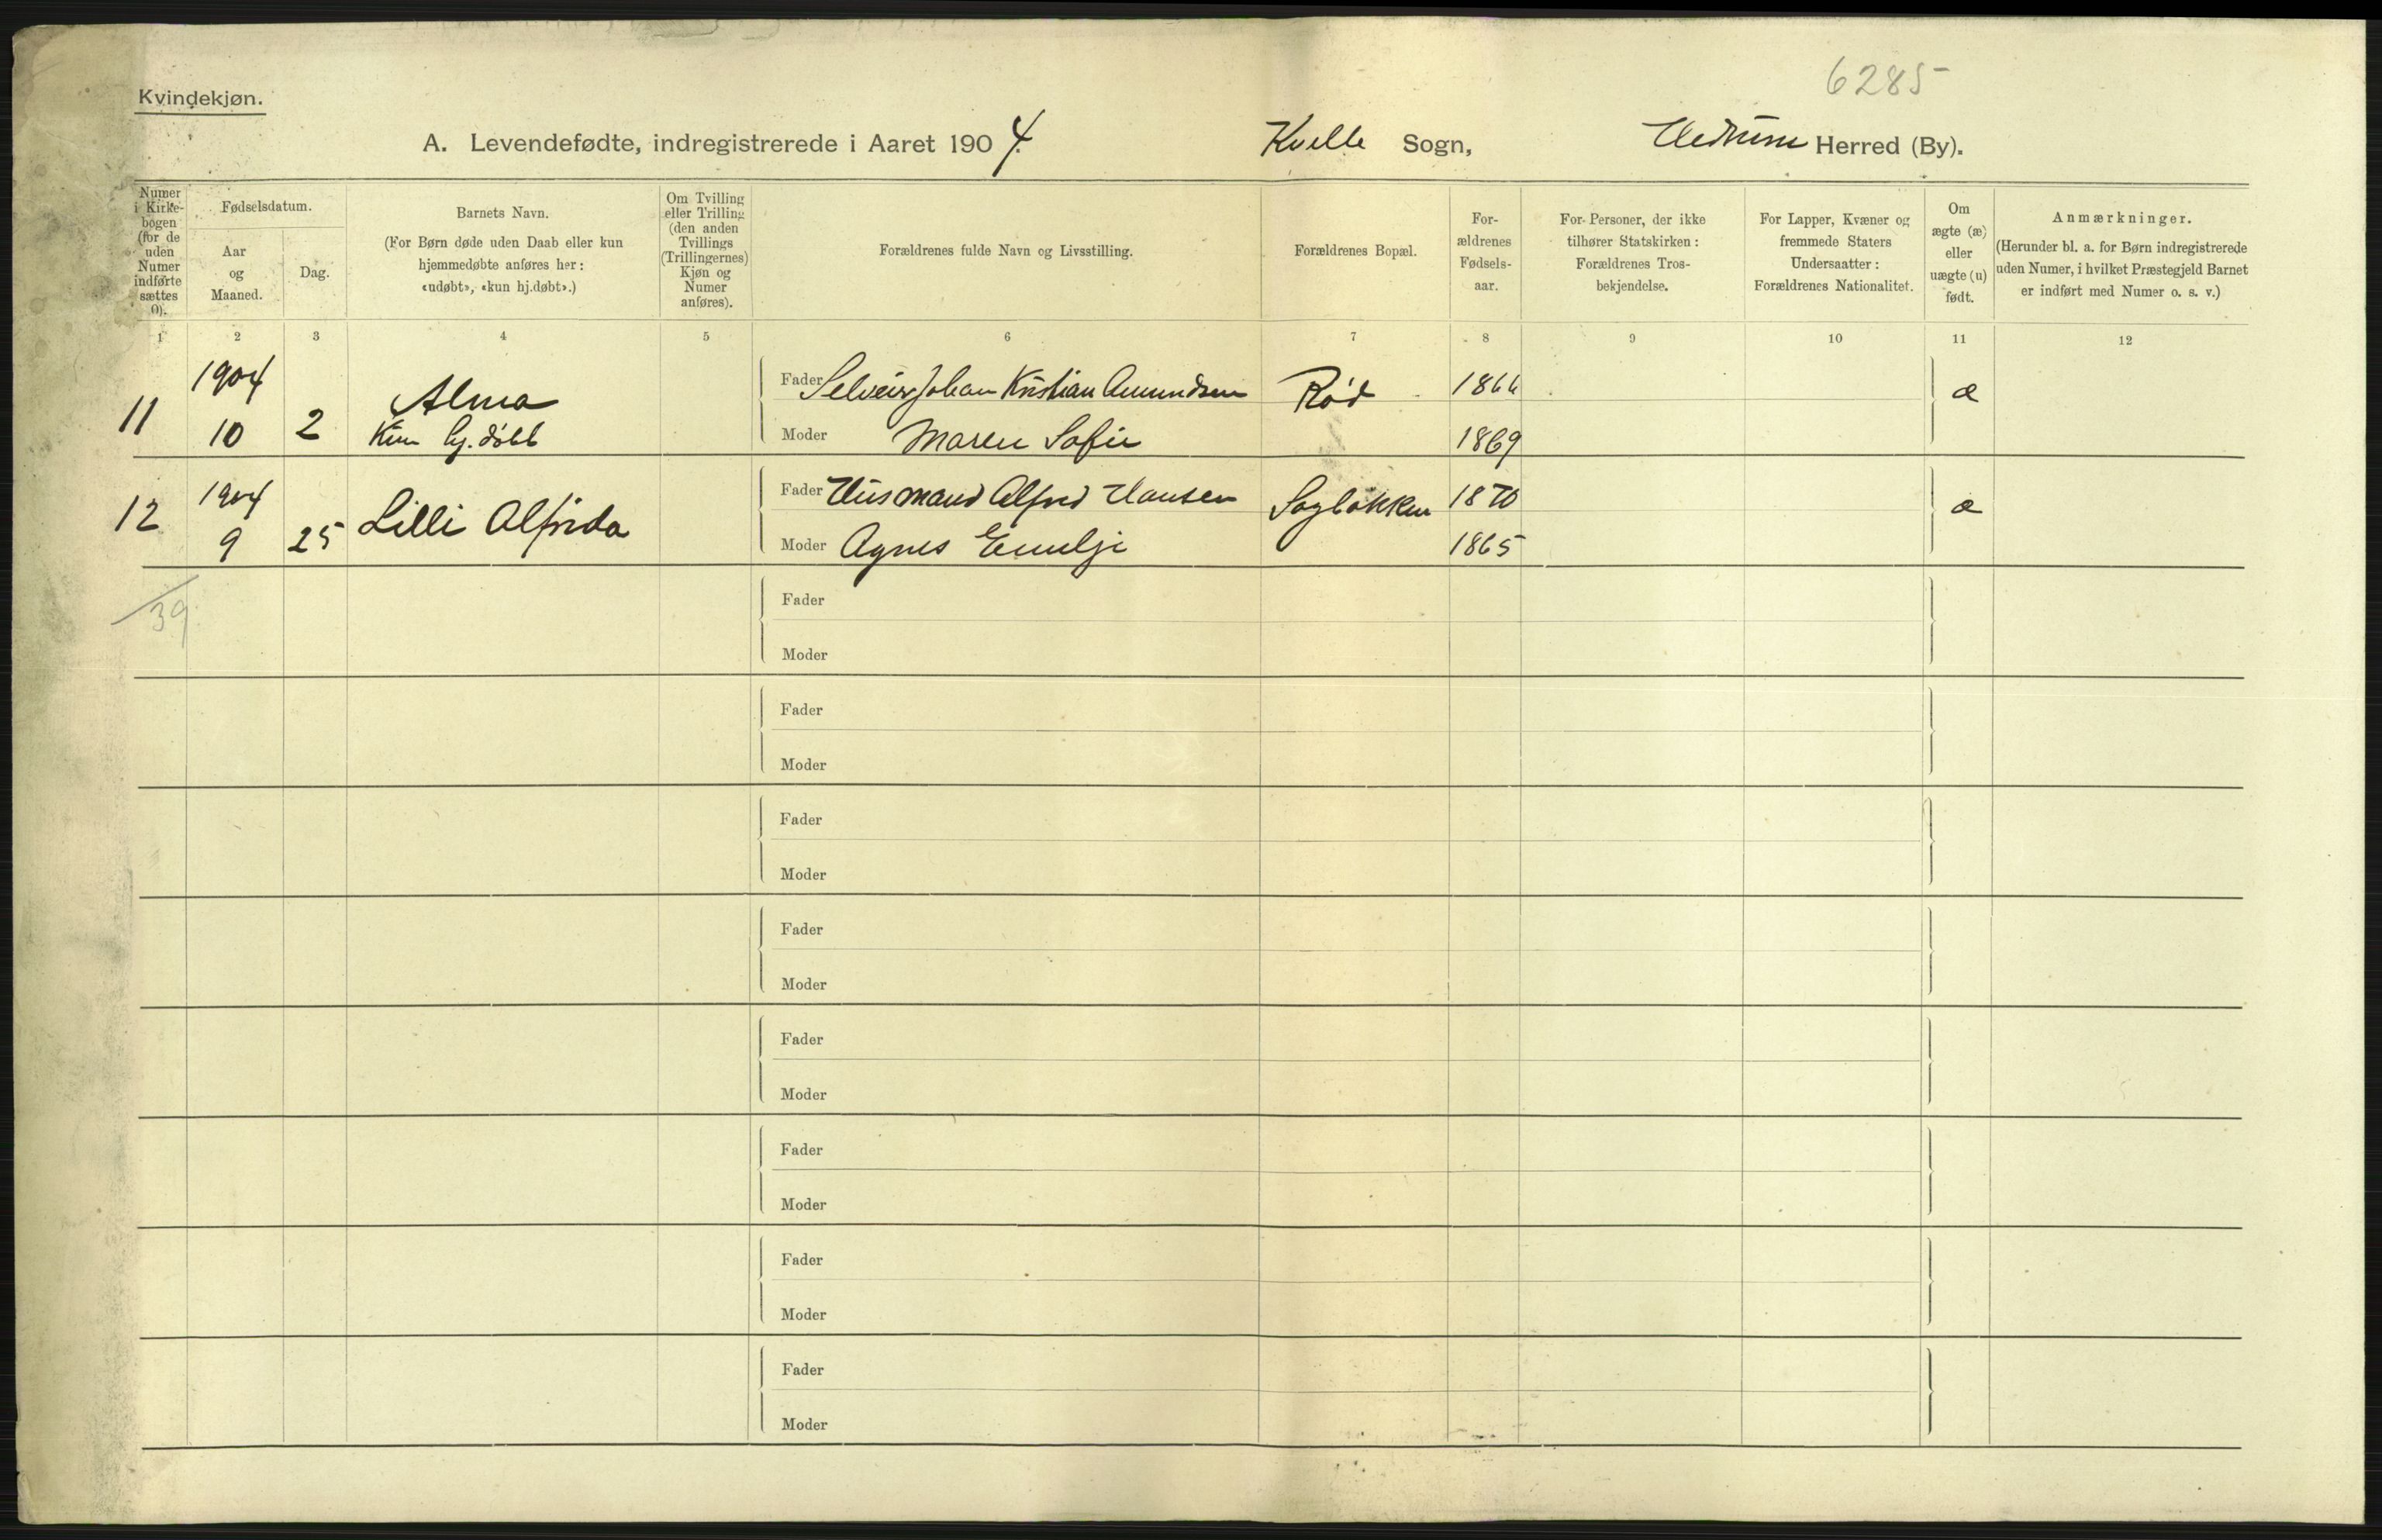 6285
Kvindekjøn.
A. Levendefødte, indregistrerede i Aaret 1904. Kvelle Sogn, Hedrum Herred (By).
Numer i Kirke- bogen (for de uden Numer indførte sættes 0).
Fødselsdatum.
Aar og Maaned.
Dag.
Barnets Navn.
(For Børn døde uden Daab eller kun
hjemmedøbte anføres her:
«udøbt», «kun hj.døbt».)
Om Tvilling
eller Trilling
(den anden
Tvillings
(Trillingernes)
Kjøn og
Numer
anføres).
Forældrenes fulde Navn og Livsstilling.
Forældrenes Bopæl.
For-
ældrenes
Fødsels-
aar.
For Personer, der ikke
tilhører Statskirken:
Forældrenes Tros-
bekjendelse.
For Lapper, Kvæner og
fremmede Staters
Undersaatter:
Forældrenes Nationalitet.
Om
ægte (æ)
eller
uægte (u)
født.
Anmærkninger.
(Herunder bl. a. for Børn indregistrerede
uden Numer, i hvilket Præstegjeld Barnet
er indført med Numer o. s. v.)
1 2 3 4 5 6 7 8 9 10 11 12
1904
11 10 2 Alma
Kun hj. døbt
Fader Selveier Johan Kristian Amundsen Rød 1866 æ
Moder Maren Sofie 1869
1904
12 9 25 Lilli Alfrida
Fader Husmand Alfred Hansen Sagbakken 1870 æ
Moder Agnes Emilje 1865
39
Fader
Moder
Fader
Moder
Fader
Moder
Fader
Moder
Fader
Moder
Fader
Moder
Fader
Moder
Fader
Moder